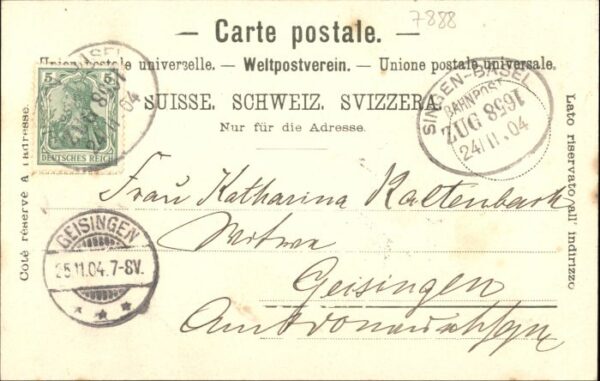 7888
— Carte postale. —
Union postale universelle. — Weltpostverein. — Unione postale universale.
SUISSE. SCHWEIZ. SVIZZERA.
Nur für die Adresse.
Côté réservé à l'adresse.
Lato riservato all' indirizzo
5 5
DEUTSCHES REICH
BASEL
ZUG 8591
24 11 04
SINGEN-BASEL
BAHNPOST
ZUG 8591
24 11. 04
GEISINGEN
25.11.04.7-8V.
* * *
Frau Katharina Kaltenbach
Witwe
Geisingen